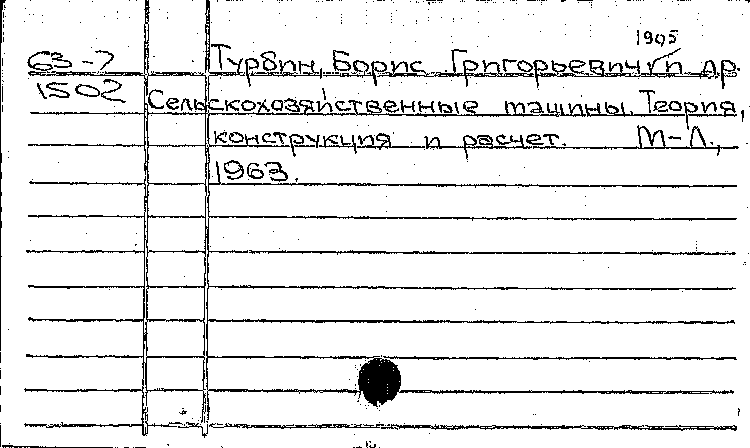 1905
63-7 Турбин, Борис Григорьевич и др.
1502 Сельскохозяйственные машины. Теория,
конструкция и расчет. М-Л.,
1963.